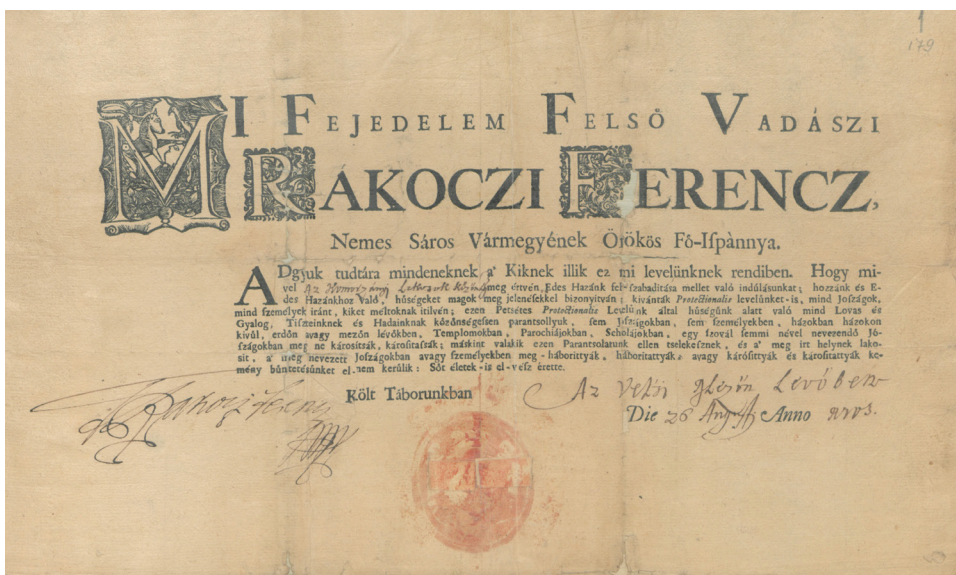 179
MI FEJEDELEM FELSÖ VADÁSZI
RAKOCZI FERENCZ,
Nemes Sáros Vármegyének Örökös Fő-Ispànnya.
ADgjuk tudtára mindeneknek a' Kiknek illik ez mi levelünknek rendiben. Hogy mi-
vel Az meg értvén, Édes Hazánk fel-szabaditása mellet való indúlásunkat; hozzánk és E-
des Hazánkhoz Való, hűségeket magok meg jelenésekkel bizonyitván; kivánták Protectionalis levelünket-is, mind Joszágok,
mind személyek iránt, kiket méltoknak itilvén; ezen Petsétes Protectionalis Levelünk által hűségünk alatt való mind Lovas és
Gyalog, Tiszeinknek és Hadainknak közönségessen parantsollyuk, sem Jószágokban, sem személyekben, házokban házokon
kivűl, erdőn avagy mezőn lévőkben, Templomokban, Parochiájokban, Scholájokban, egy szovál semmi nével nevezendő Jó-
szágokban meg ne károsittsák, kárositassák; máskint valakik ezen Parantsolatunk ellen tselekesznek, és a' meg irt helynek lako-
sit, a' meg nevezett Joszágokban avagy személyekben meg-háborittyák, háboritattyák avagy kárósittyák és kárositattyák ke-
mény bűntetésünket el nem kerülik: Sőt életek-is el-vész érette.
Költ Táborunkban Az Levőben
Die 26 Anno
Rakoczi Ferencz